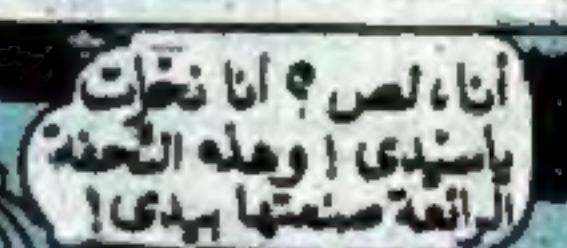 أنا، لص ؟ أنا نحّات
ياسيّدى ! وهذه التحفه
الرائعة صنعتها بيدى !